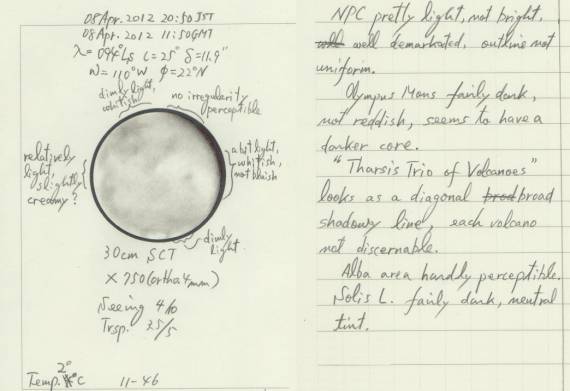 08 Apr. 2012 20:50 JST
08 Apr. 2012 11:50 GMT
λ=094°Ls ι=25° δ=11.9"
ω=110°W φ=22°N
dimly light,
whitish
no irregularity
perceptible
relatively
light,
slightly
creamy?
a bit light,
whitish,
not bluish
dimly
light
30cm SCT
× 750 (ortho 4mm)
Seeing 4/10
Trsp. 3.5/5
2°
Temp. °C 11-46
NPC pretty light, not bright,
well demarkated, outline not
uniform.
Olympus Mons fairly dark,
not reddish, seems to have a
darker core.
"Tharsis Trio of Volcanoes"
looks as a diagonal broad
shadowy line, each volcano
not discernable.
Alba area hardly perceptible.
Solis L. fairly dark, neutral
tint.